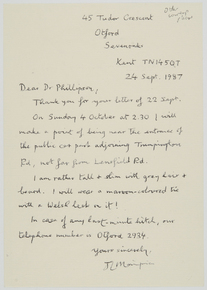 45 Tudor Crescent
Otford
Sevenoaks
Kent TN14 5QT
24 Sept. 1987
Dear Dr Phillipson,
Thank you for your letter of 22 Sept.
On Sunday 4 October at 2.30 I will
make a point of being near the entrance of
the public car park adjoining Trumpington
Rd, not far from Lensfield Rd.
I am rather tall & slim with grey hair &
beard. I will wear a maroon-coloured tie
with a Welsh leek on it!
In case of any last-minute hitch, our
telephone number is Otford 2934.
Yours sincerely,